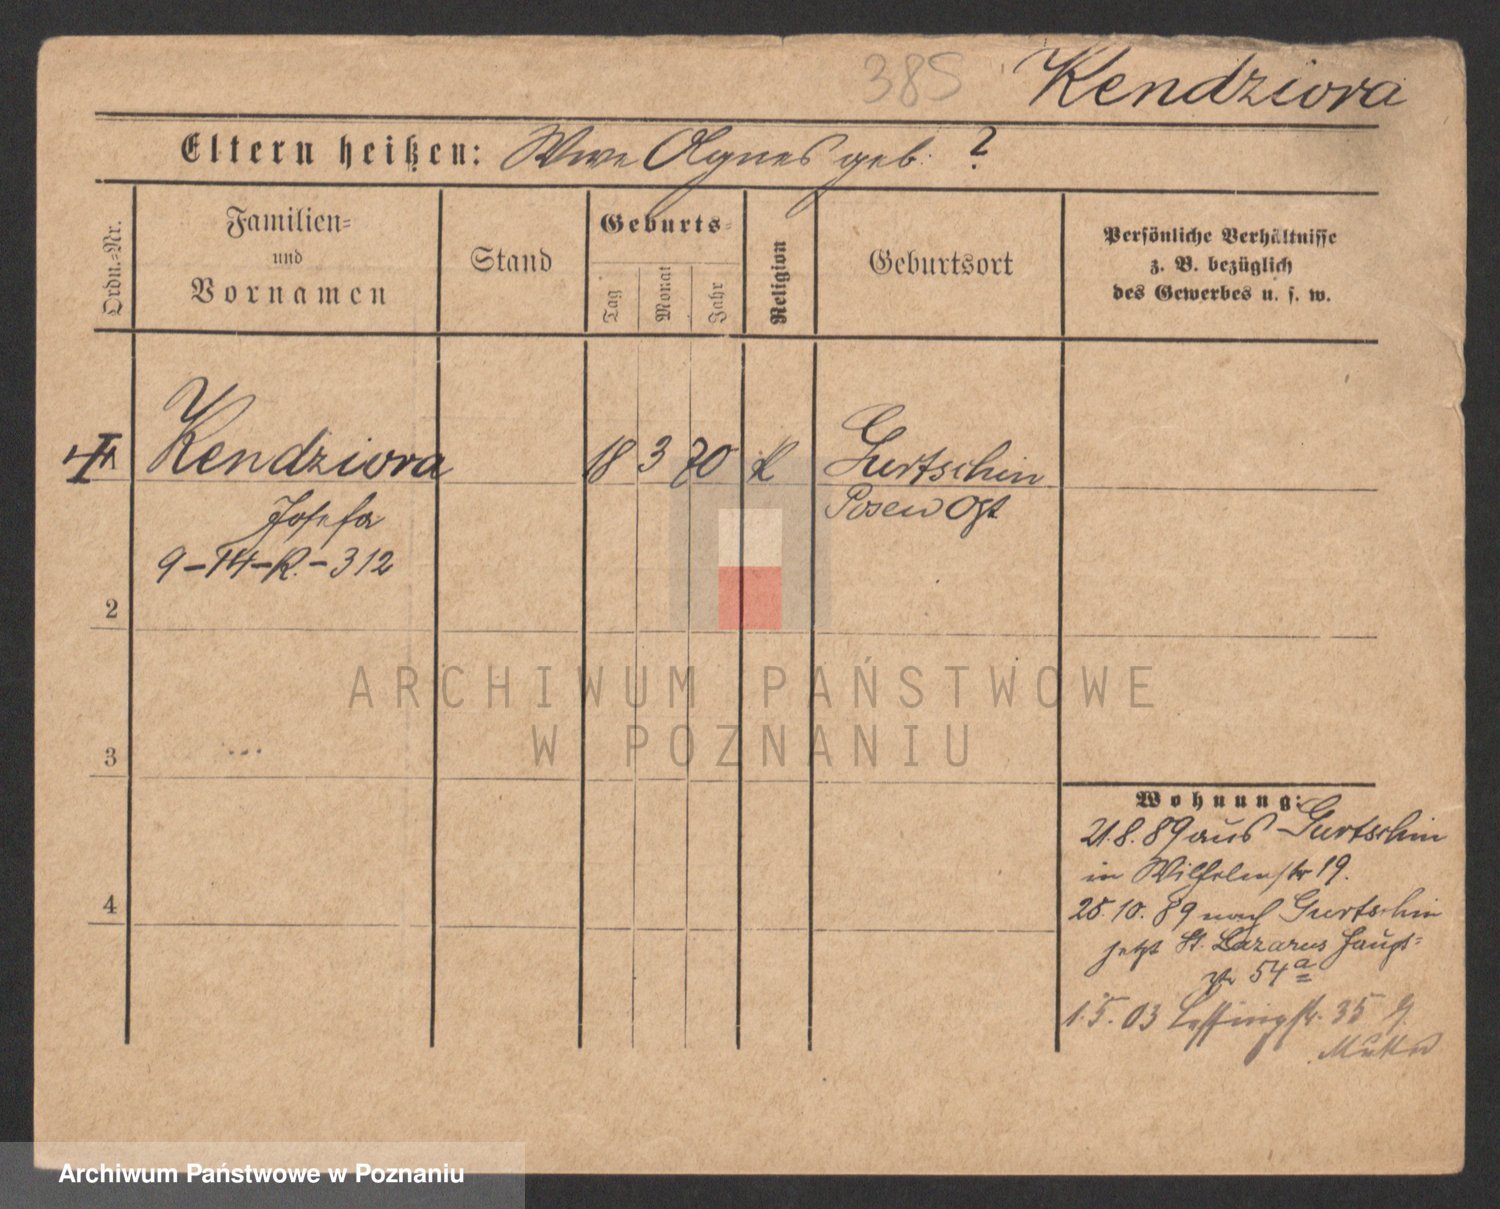 385 Kendziora
Eltern heißen: Wwe Agnes geb. ?
Ordn.=Nr.
Familien=
und
Vornamen
Stand
Geburts=
Tag
Monat
Jahr
Religion
Geburtsort
Persönliche Verhältnisse
z. B. bezüglich
des Gewerbes u. s. w.
Kendziora 18 3 70 K Gurtschin
Josefa Posen Ost
9-14-R.-312
2
3
4
Wohnung:
21.8.89 aus Gurtschin
in Wilhelmstr 19.
25.10.89 nach Gurtschin
jetzt St. Lazarus Haupt=
str 54a
1.5.03 Lessingstr. 35
Mutter
ARCHIWUM PAŃSTWOWE
W POZNANIU
Archiwum Państwowe w Poznaniu